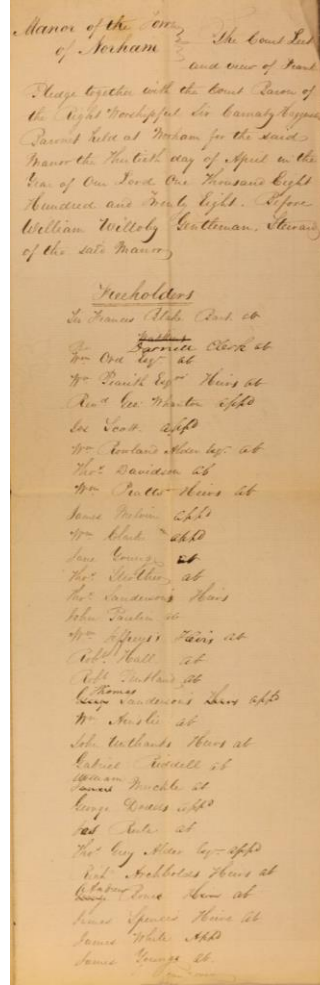 Manor of the Town
of Norham
The Court Leet
and view of Frank
Pledge together with the Court Baron of
the Right Worshipful Sir Carnaby Haggerston
Baronet held at Norham for the said
Manor the Thirtieth day of April in the
Year of Our Lord One Thousand Eight
Hundred and Twenty Eight. Before
William Willoby Gentleman, Steward
of the said Manor
Freeholders
Sir Francis Blake Bart ab
Darnell Clerk ab
Wm Ord Esqr ab
Wm Heirs ab
Revd Geo Wharton appd
Scott appd
Wm Rowland Alder Esqr ab
Thos Davidson ab
Wm Heirs ab
James appd
Wm Clark appd
Jane Young ab
Thos Strother ab
Thos Sanderson's Heirs
John Paulin ab
Wm Jeffreys's Heirs ab
Robt Hall ab
Robt ab
Thomas
Sanderson's appd
Wm Ainslie ab
John Unthanks Heirs ab
Gabriel Riddell ab
William
Muckle ab
George Dodds appd
ab
Thos Grey Alder Esqr appd
Archbolds Heirs ab
ab
James Spences Heirs ab
James White Appd
James Youngs ab